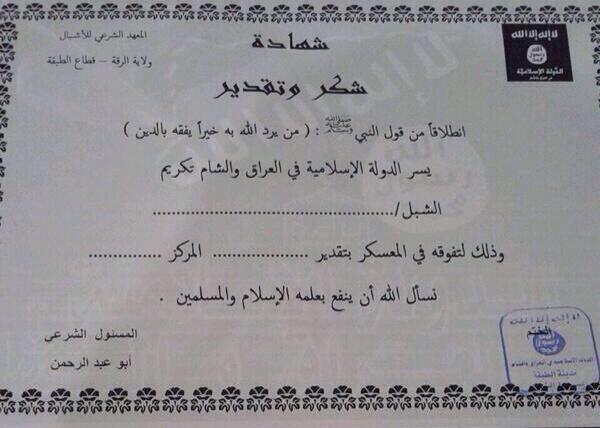 المعهد الشرعي للأشبال
ولاية الرقة - قطاع الطبقة
لا إله إلا الله
الله
رسول
محمد
الدولة الإسلامية
شهادة
شكر وتقدير
انطلاقاً من قول النبي ﷺ : ( من يرد الله به خيراً يفقه بالدين )
يسر الدولة الإسلامية في العراق والشام تكريم
الشبل/............................................
وذلك لتفوقه في المعسكر بتقدير .................. المركز ..............
نسأل الله أن ينفع بعلمه الإسلام والمسلمين .
المسئول الشرعي
أبو عبد الرحمن
الختم
لا إله إلا الله
الله
رسول
محمد
مدينة الطبقة